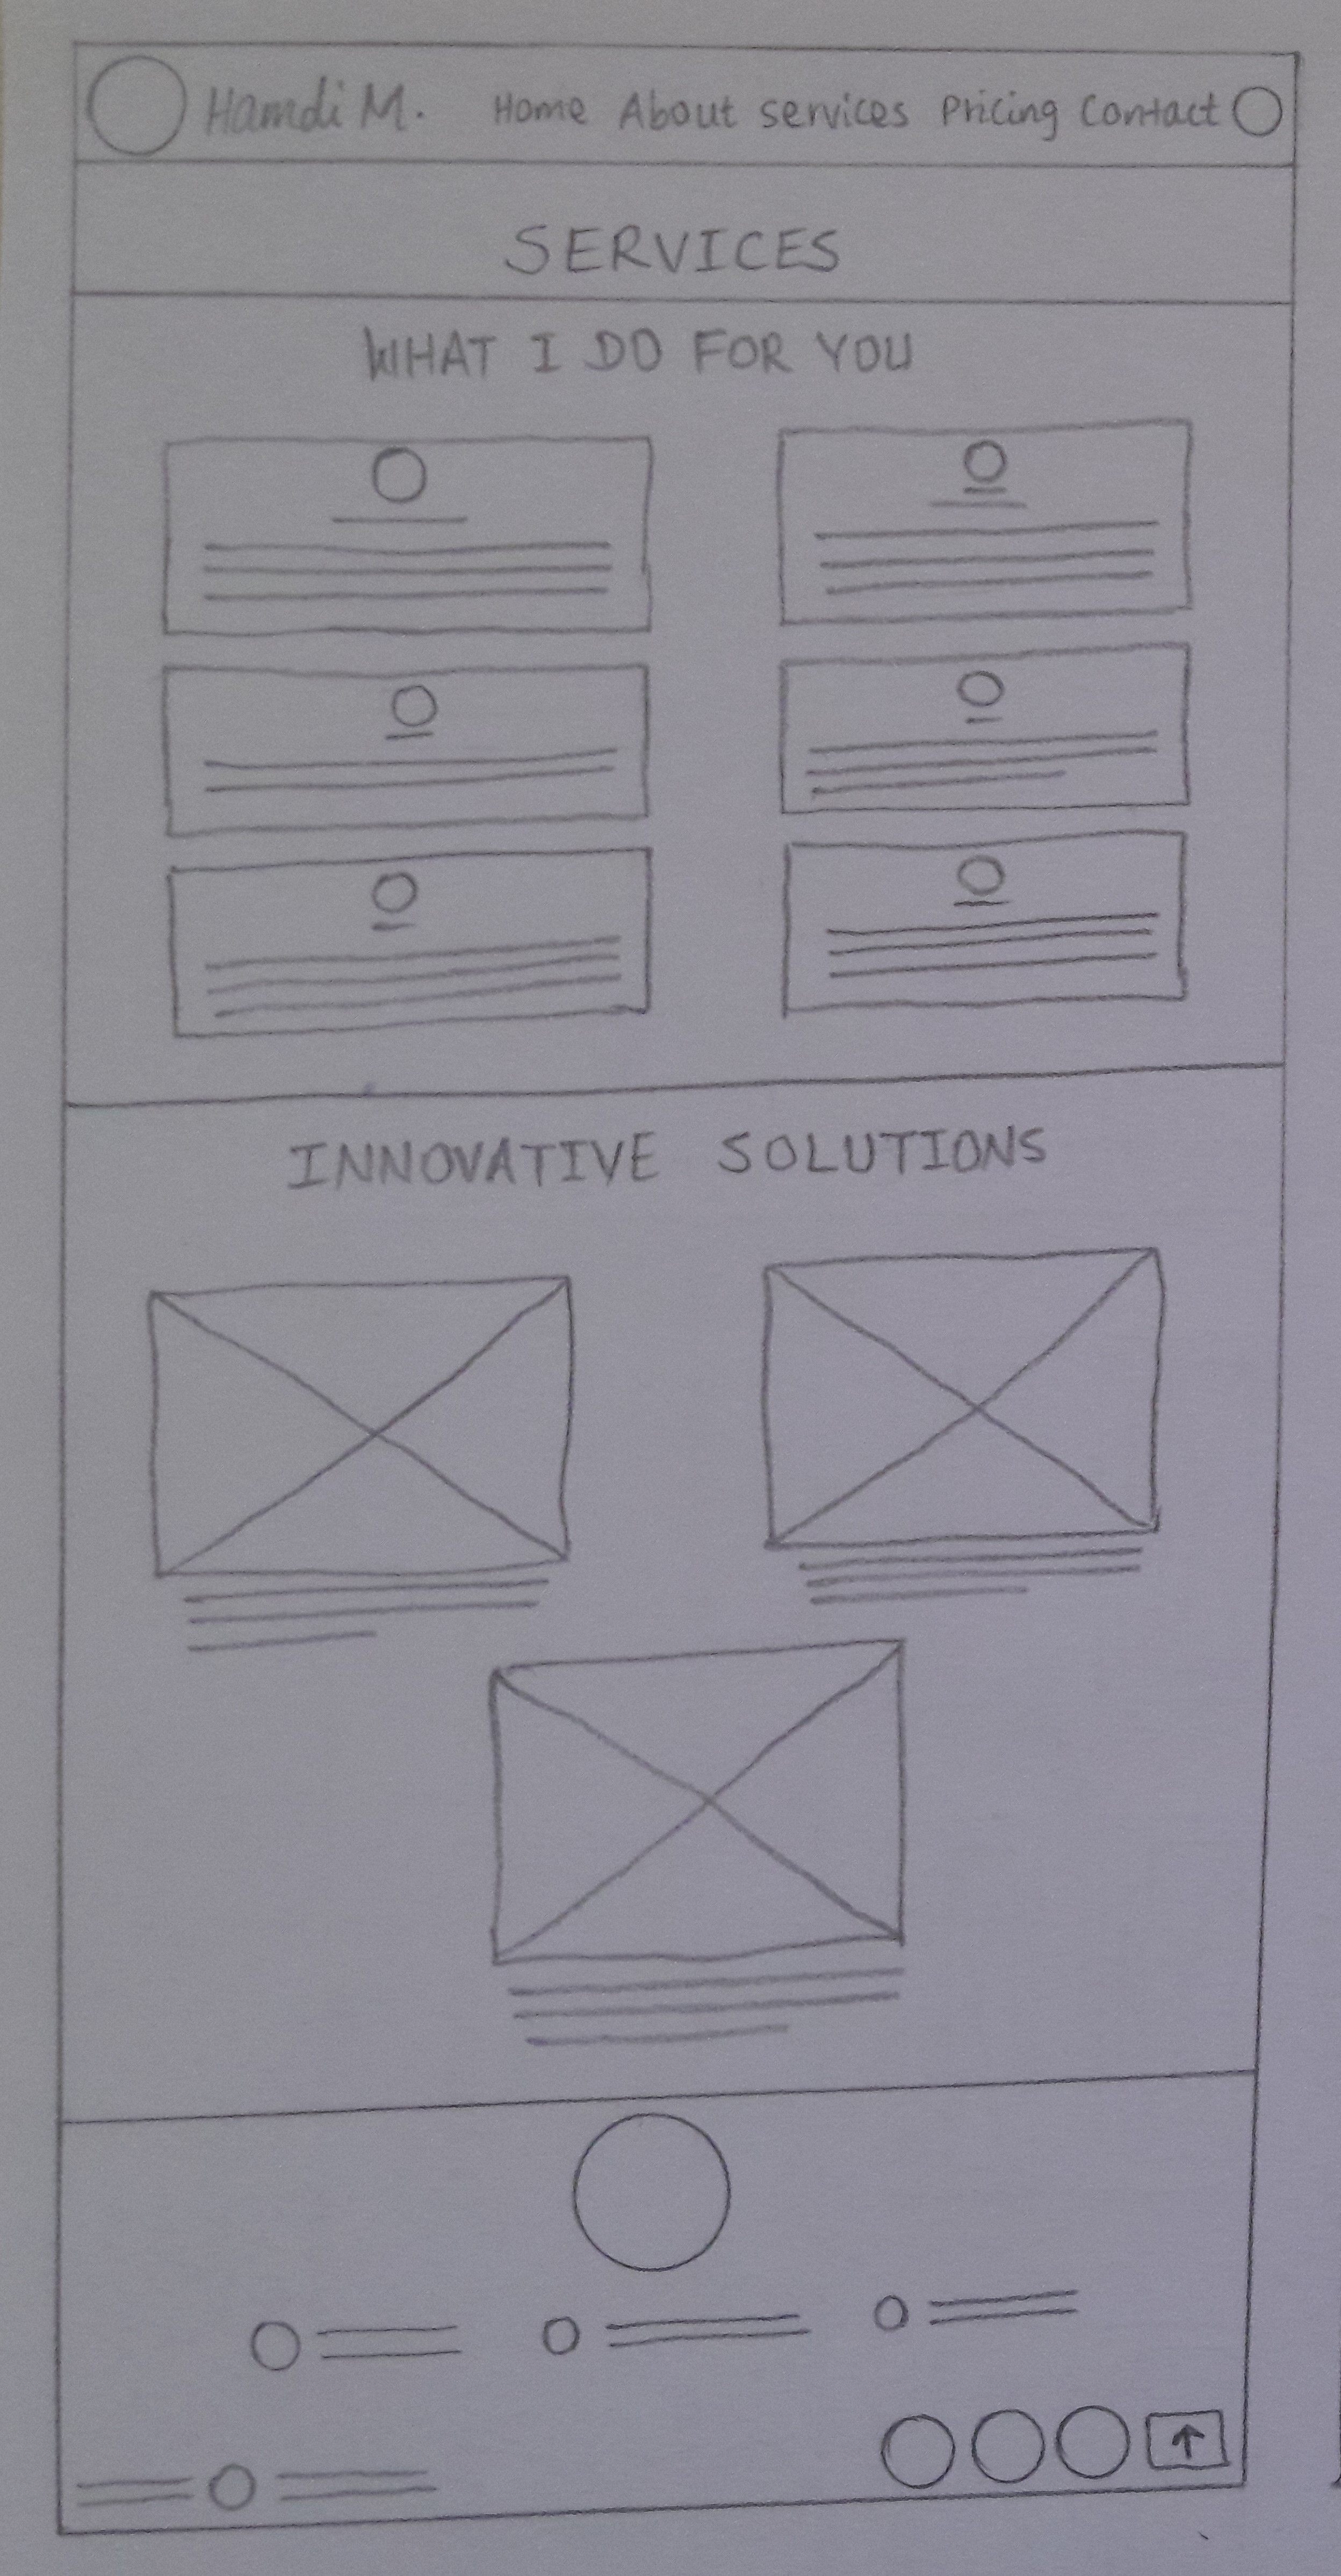 Hamdi M. Home About Services Pricing Contact
SERVICES
WHAT I DO FOR YOU
INNOVATIVE SOLUTIONS